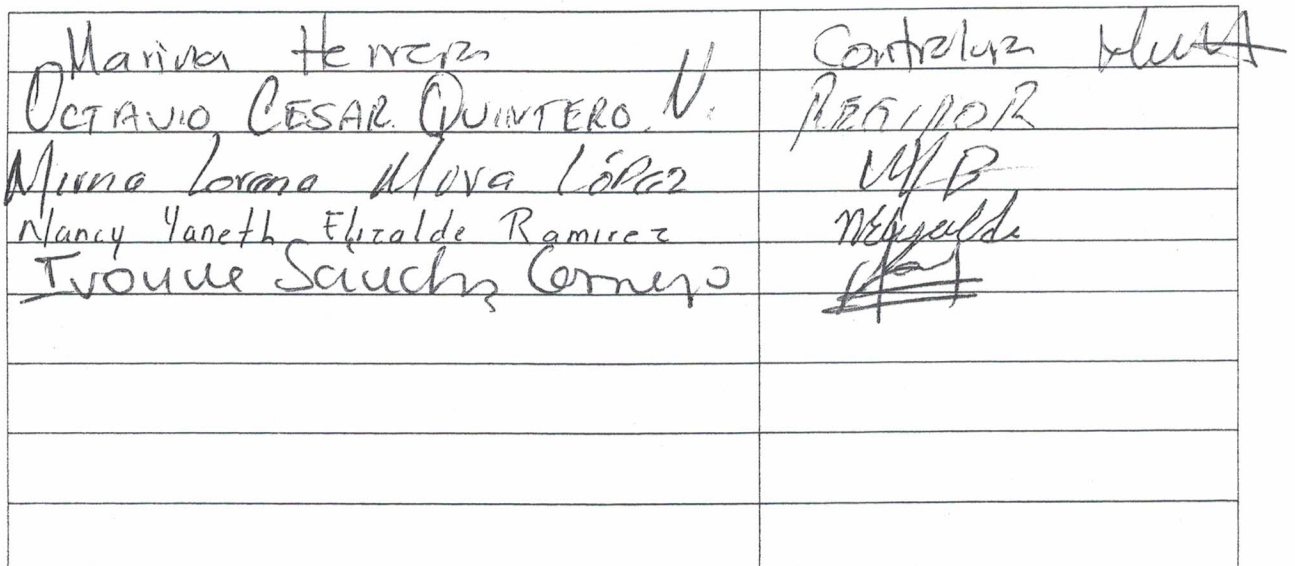 Marina Herrera Contralora
OCTAVIO CESAR QUINTERO N. REGIDOR
Mirna Lorena Mova López
Nancy Yaneth Elizalde Ramirez NElizalde
Ivonne Sánchz Cornejo